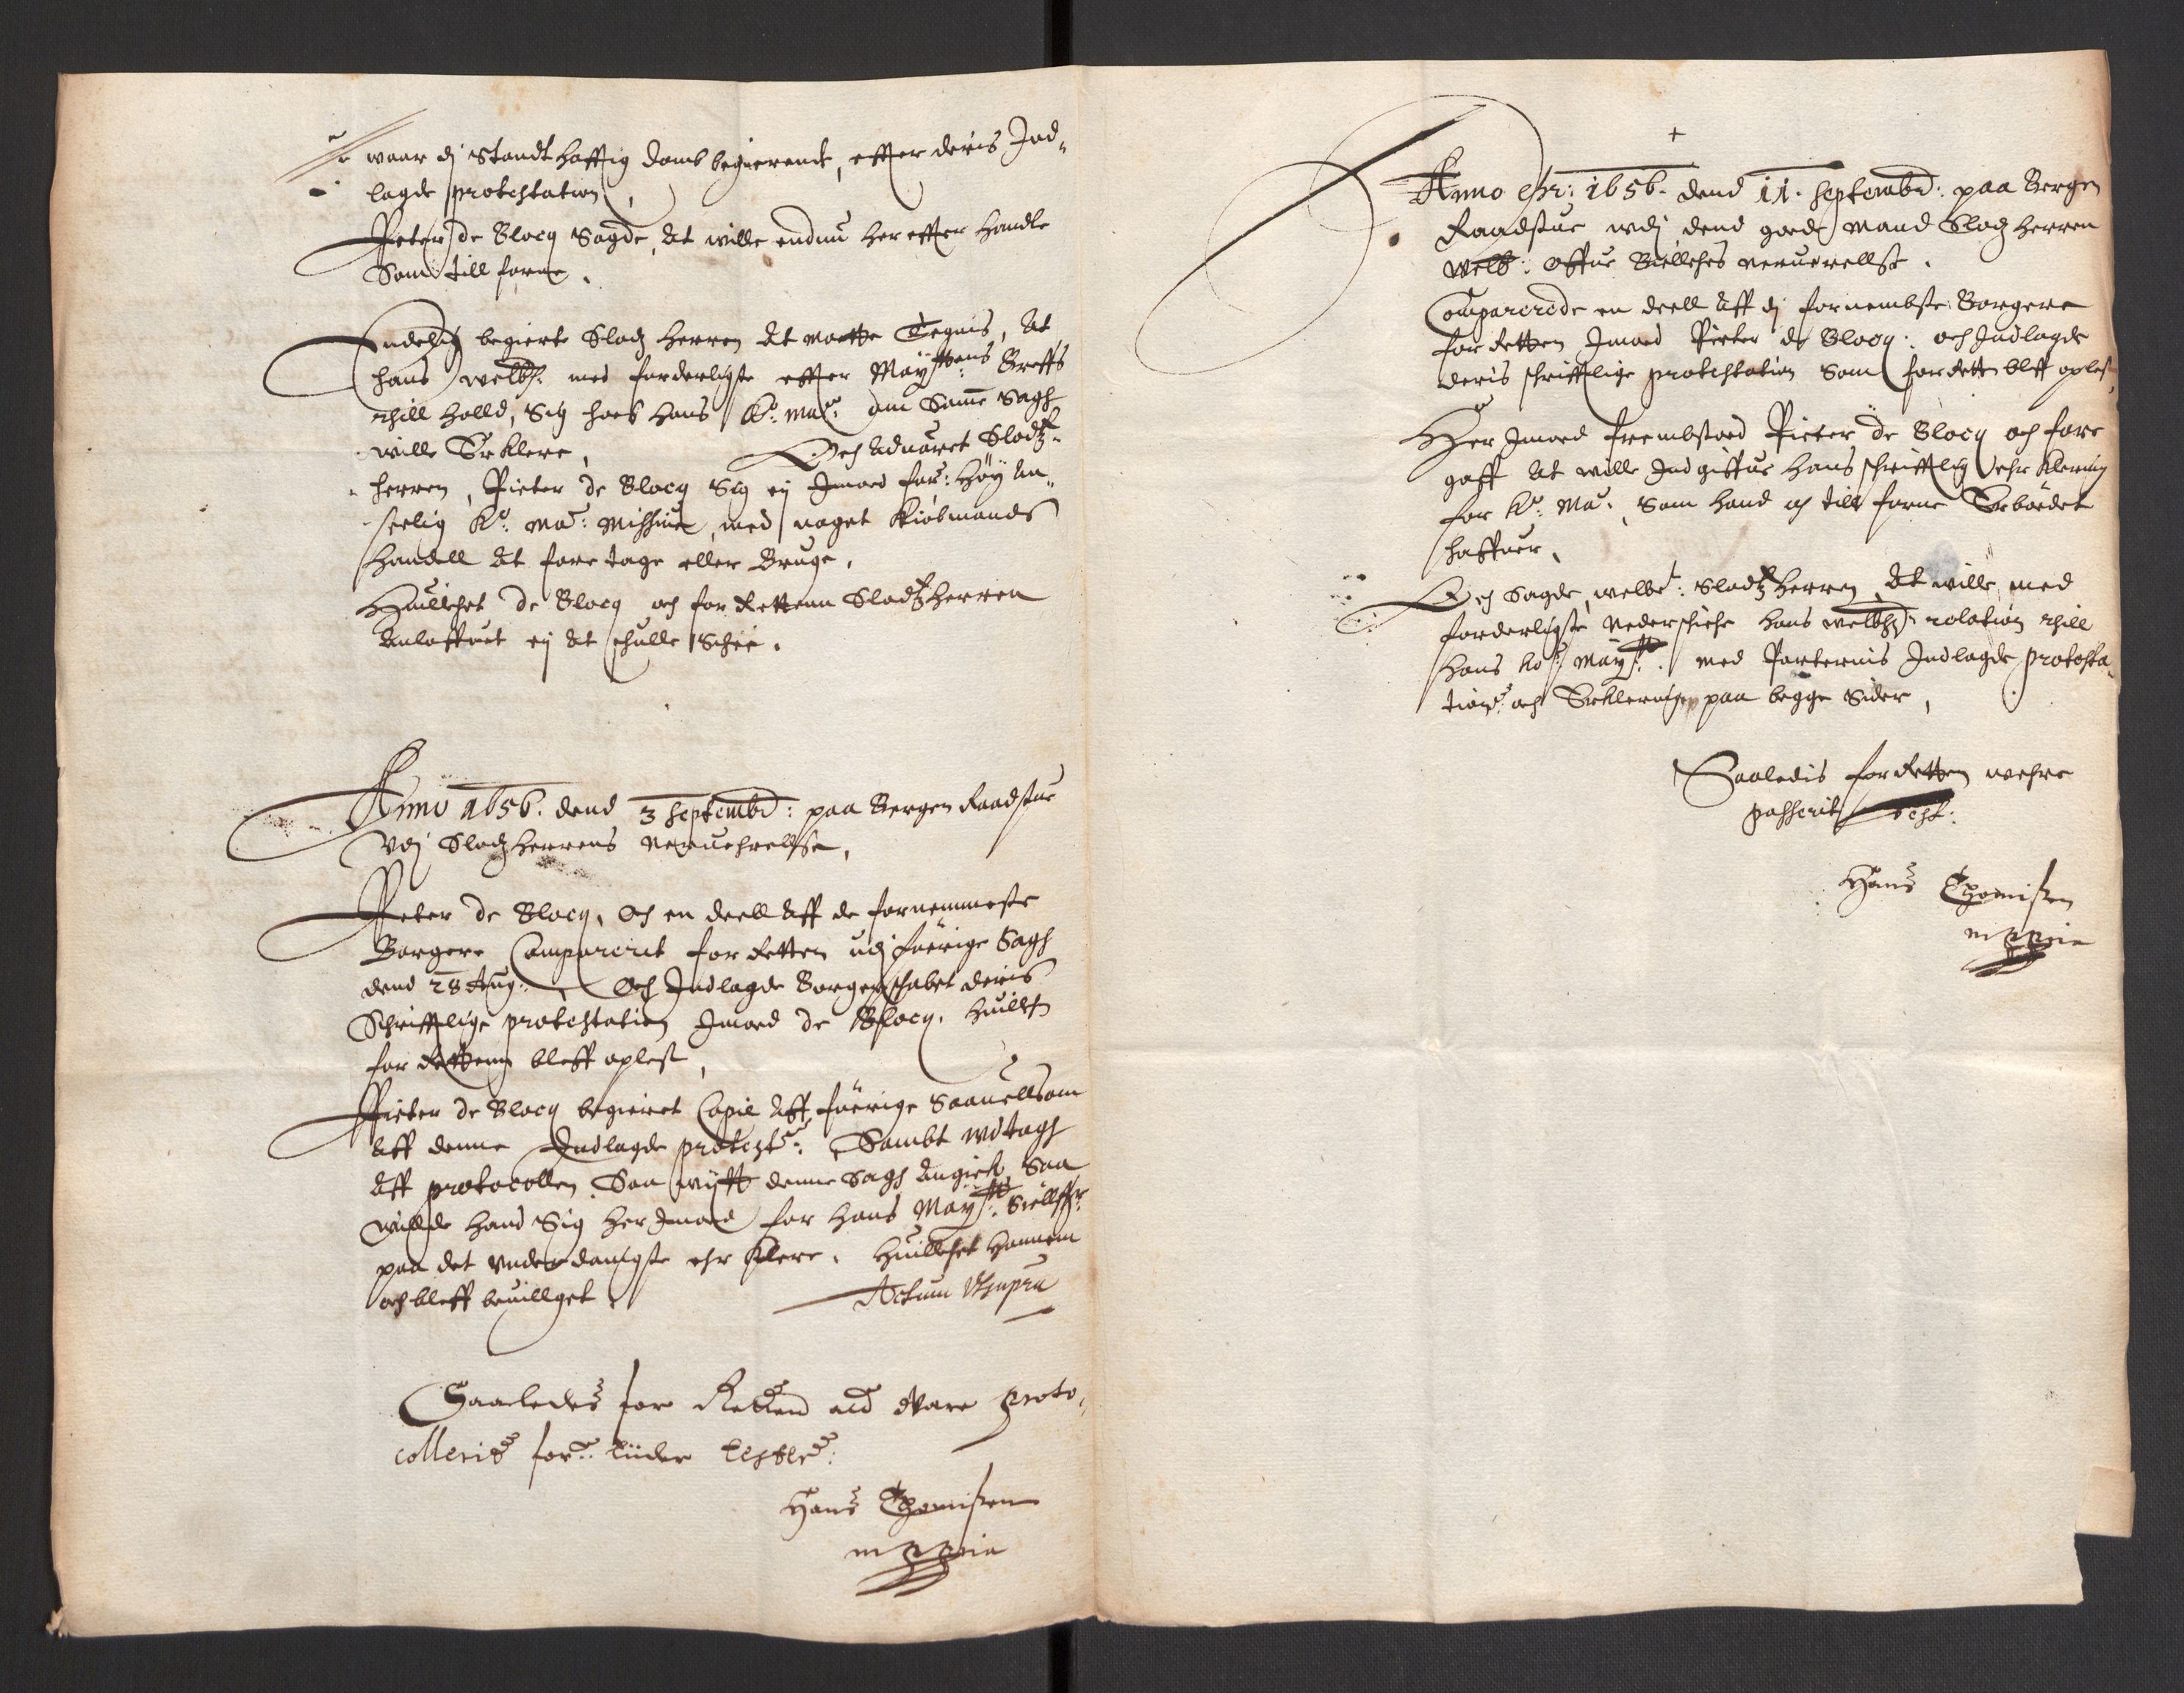 waar dj Standthafftig domb begierende, effter deris Ind-
lagde protestation,
Peter de Blocq Sagde, At wille endnu her effter handle
Som till forne.
Endelig begierte Slodz Herren At motte Tegnis, At
hans welbh: med forderligste effter Maÿttens: Breffs
Ihill holld, Sig hoes Hans Ko: Ma: om Samme Sagh
wille Erklere, Och Aduaret Slodtz-
herren, Pieter de Blocq Sig eÿ Imoed for: Høÿ An-
seelig Ko: Ma: Missiue, med noget Kiøbmands
Handell At foretage eller Bruge,
Huilchet de Blocq och for Rettenn Slodtzherren
Anloffuet eÿ At schulle Schee.
Anno 1656. dend 3 Septembr: paa Bergen Raadstue
Vdj Slodzherrens neruehrellse,
Peter de Blocq, Och en deell Aff de fornemmeste
Borgere Comparerit for Retten udj foerige Sagh
dend 28 Aug: Och Indlagde Borgerschabet deris
Schrifftlige protestation Imoed de Blocq. Huilken
for Rettenn bleff oplest,
Pieter de Blocq begieret Copie Aff foerige Saauellsom
Aff denne Indlagde protest: Sambt wdtagh
Aff protocollen. Saa wijtt denne Sagh Angick, Saa
willde Hand Sig her Imoed for Hans Maÿtt: Siellff
paa det vnderdanigste ehrklere. Huilchet Hannem
och bleff beuillget. Actum Vtsupra
Saaledes for Retten ald Vare proto-
colleris for: liuder testerr:
Hans Thomissen
mppria
Anno Chr: 1656. dend 11. Septembr: paa Bergen
Raadstue wdj dend goede Mand Slodz Herren
Welb: Offue Bielches neruerellse.
Comparerede en deell Aff dj fornembste Borgere
for Retten Imoed Pieter de Blocq. och Indlagde
deris schrifftlige protestation Som for Retten bleff oplest,
Her Imoed frembstoed Pieter de Blocq och fore
gaff At wille Indgiffue Hans schrifftlig Ehrklering
for Ko: Ma: Som Hand och till forne Erbødet
haffuer,
Och Sagde welbr: Slodtz Herren At wille med
forderligste nederschiche Hans welbhz: relation Ihill
Hans Ko: Maÿtt: med Parternis Indlagde protesta-
tion: och Erkleringer paa begge Sider,
Saaledis for Retten wehre
passerit test:
Hans Thomissen
mppria